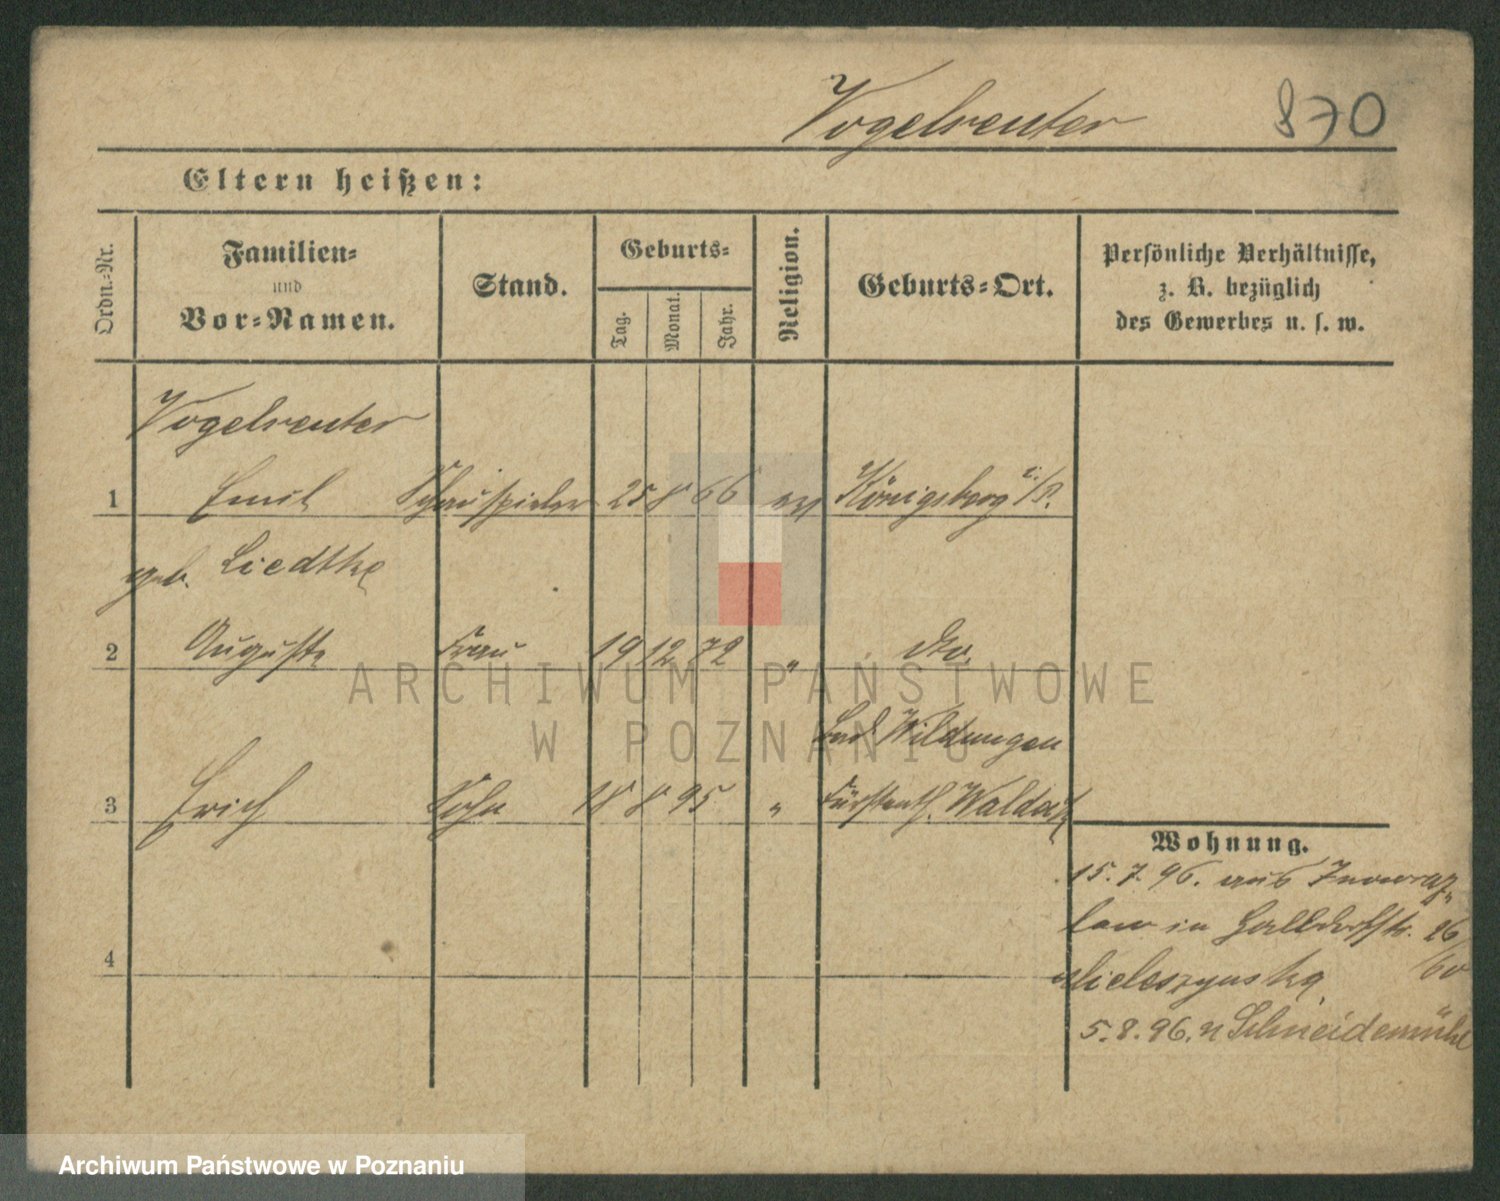 Vogelreuter 870
Eltern heißen:
Ordn.-Nr.
Familien-
und
Vor-Namen.
Stand.
Geburts-
Tag.
Monat.
Jahr.
Religion.
Geburts-Ort.
Persönliche Verhältnisse,
z. B. bezüglich
des Gewerbes u. s. w.
Vogelreuter
1 Emil Schauspieler 25 8 66 ev Königsberg i/P.
geb. Liedtke
2 Auguste Frau 19 12 72 " dto.
Bad Wildungen
3 Erich Sohn 18 8 95 " Fürstenth. Waldeck
4
Wohnung.
15.7.96. aus Inowraz-
law in Halldorfstr. 26
bei
5.8.96. n Schneidemühl
ARCHIWUM PAŃSTWOWE
W POZNANIU
Archiwum Państwowe w Poznaniu